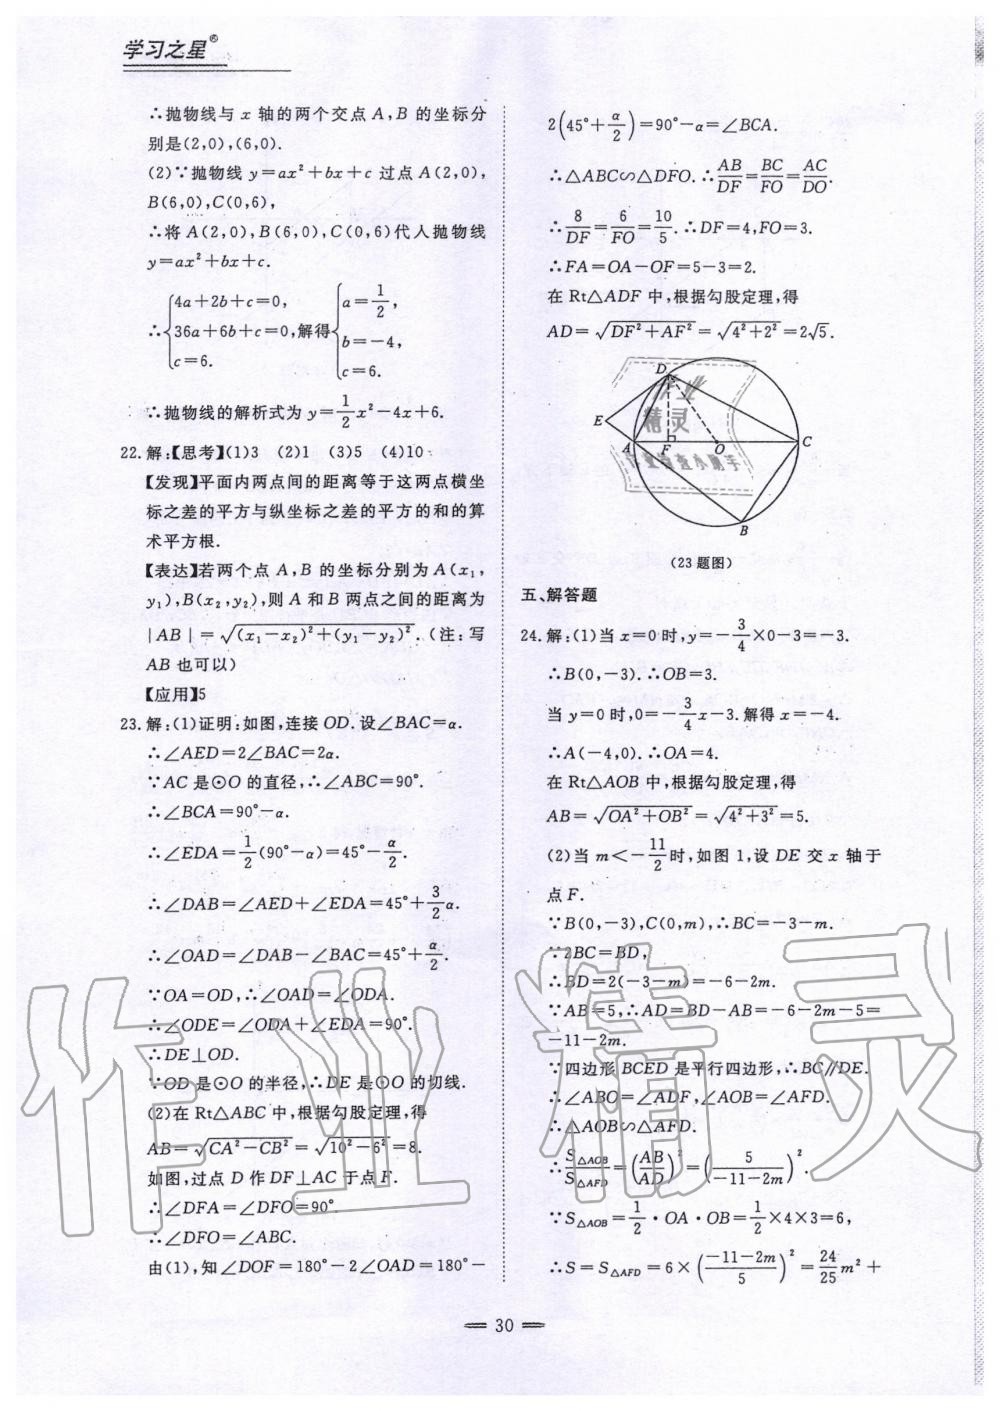 学习之星®
∴抛物线与 x 轴的两个交点 A,B 的坐标分
别是(2,0),(6,0).
(2)∵抛物线 y=ax²+bx+c 过点 A(2,0),
B(6,0),C(0,6),
∴将 A(2,0),B(6,0),C(0,6)代人抛物线
y=ax²+bx+c.
∴{4a+2b+c=0, 36a+6b+c=0, c=6. 解得{a=1/2, b=-4, c=6.
∴抛物线的解析式为 y=1/2x²-4x+6.
22.解:【思考】(1)3 (2)1 (3)5 (4)10
【发现】平面内两点间的距离等于这两点横坐
标之差的平方与纵坐标之差的平方的和的算
术平方根.
【表达】若两个点 A,B 的坐标分别为 A(x₁,
y₁),B(x₂,y₂),则 A 和 B 两点之间的距离为
|AB|=√((x₁-x₂)²+(y₁-y₂)²).(注:写
AB 也可以)
【应用】5
23.解:(1)证明:如图,连接 OD.设∠BAC=α.
∴∠AED=2∠BAC=2α.
∵AC 是⊙O 的直径,∴∠ABC=90°.
∴∠BCA=90°-α.
∴∠EDA=1/2(90°-α)=45°-α/2.
∴∠DAB=∠AED+∠EDA=45°+3/2α.
∴∠OAD=∠DAB-∠BAC=45°+α/2.
∵OA=OD,∴∠OAD=∠ODA.
∴∠ODE=∠ODA+∠EDA=90°.
∴DE⊥OD.
∵OD是⊙O的半径,∴DE是⊙O的切线.
(2)在 Rt△ABC 中,根据勾股定理,得
AB=√(CA²-CB²)=√(10²-6²)=8.
如图,过点 D 作 DF⊥AC 于点 F.
∴∠DFA=∠DFO=90°.
∴∠DFO=∠ABC.
由(1),知∠DOF=180°-2∠OAD=180°-
2(45°+α/2)=90°-α=∠BCA.
∴△ABC∽△DFO.∴AB/DF=BC/FO=AC/DO.
∴8/DF=6/FO=10/5.∴DF=4,FO=3.
∴FA=OA-OF=5-3=2.
在 Rt△ADF 中,根据勾股定理,得
AD=√(DF²+AF²)=√(4²+2²)=2√5.
D
E
A
F
O
C
B
(23题图)
五、解答题
24.解:(1)当 x=0 时,y=-3/4×0-3=-3.
∴B(0,-3).∴OB=3.
当 y=0 时,0=-3/4x-3.解得 x=-4.
∴A(-4,0).∴OA=4.
在 Rt△AOB 中,根据勾股定理,得
AB=√(OA²+OB²)=√(4²+3²)=5.
(2)当 m<-11/2时,如图 1,设 DE 交 x 轴于
点 F.
∵B(0,-3),C(0,m),∴BC=-3-m.
∵2BC=BD,
∴BD=2(-3-m)=-6-2m.
∵AB=5,∴AD=BD-AB=-6-2m-5=
-11-2m.
∵四边形 BCED 是平行四边形,∴BC∥DE.
∴∠ABO=∠ADF,∠AOB=∠AFD.
∴△AOB∽△AFD.
∴S△AOB/S△AFD=(AB/AD)²=(5/(-11-2m))².
∵S△AOB=1/2·OA·OB=1/2×4×3=6,
∴S=S△AFD=6×((-11-2m)/5)²=24/25m²+
30
作业精灵